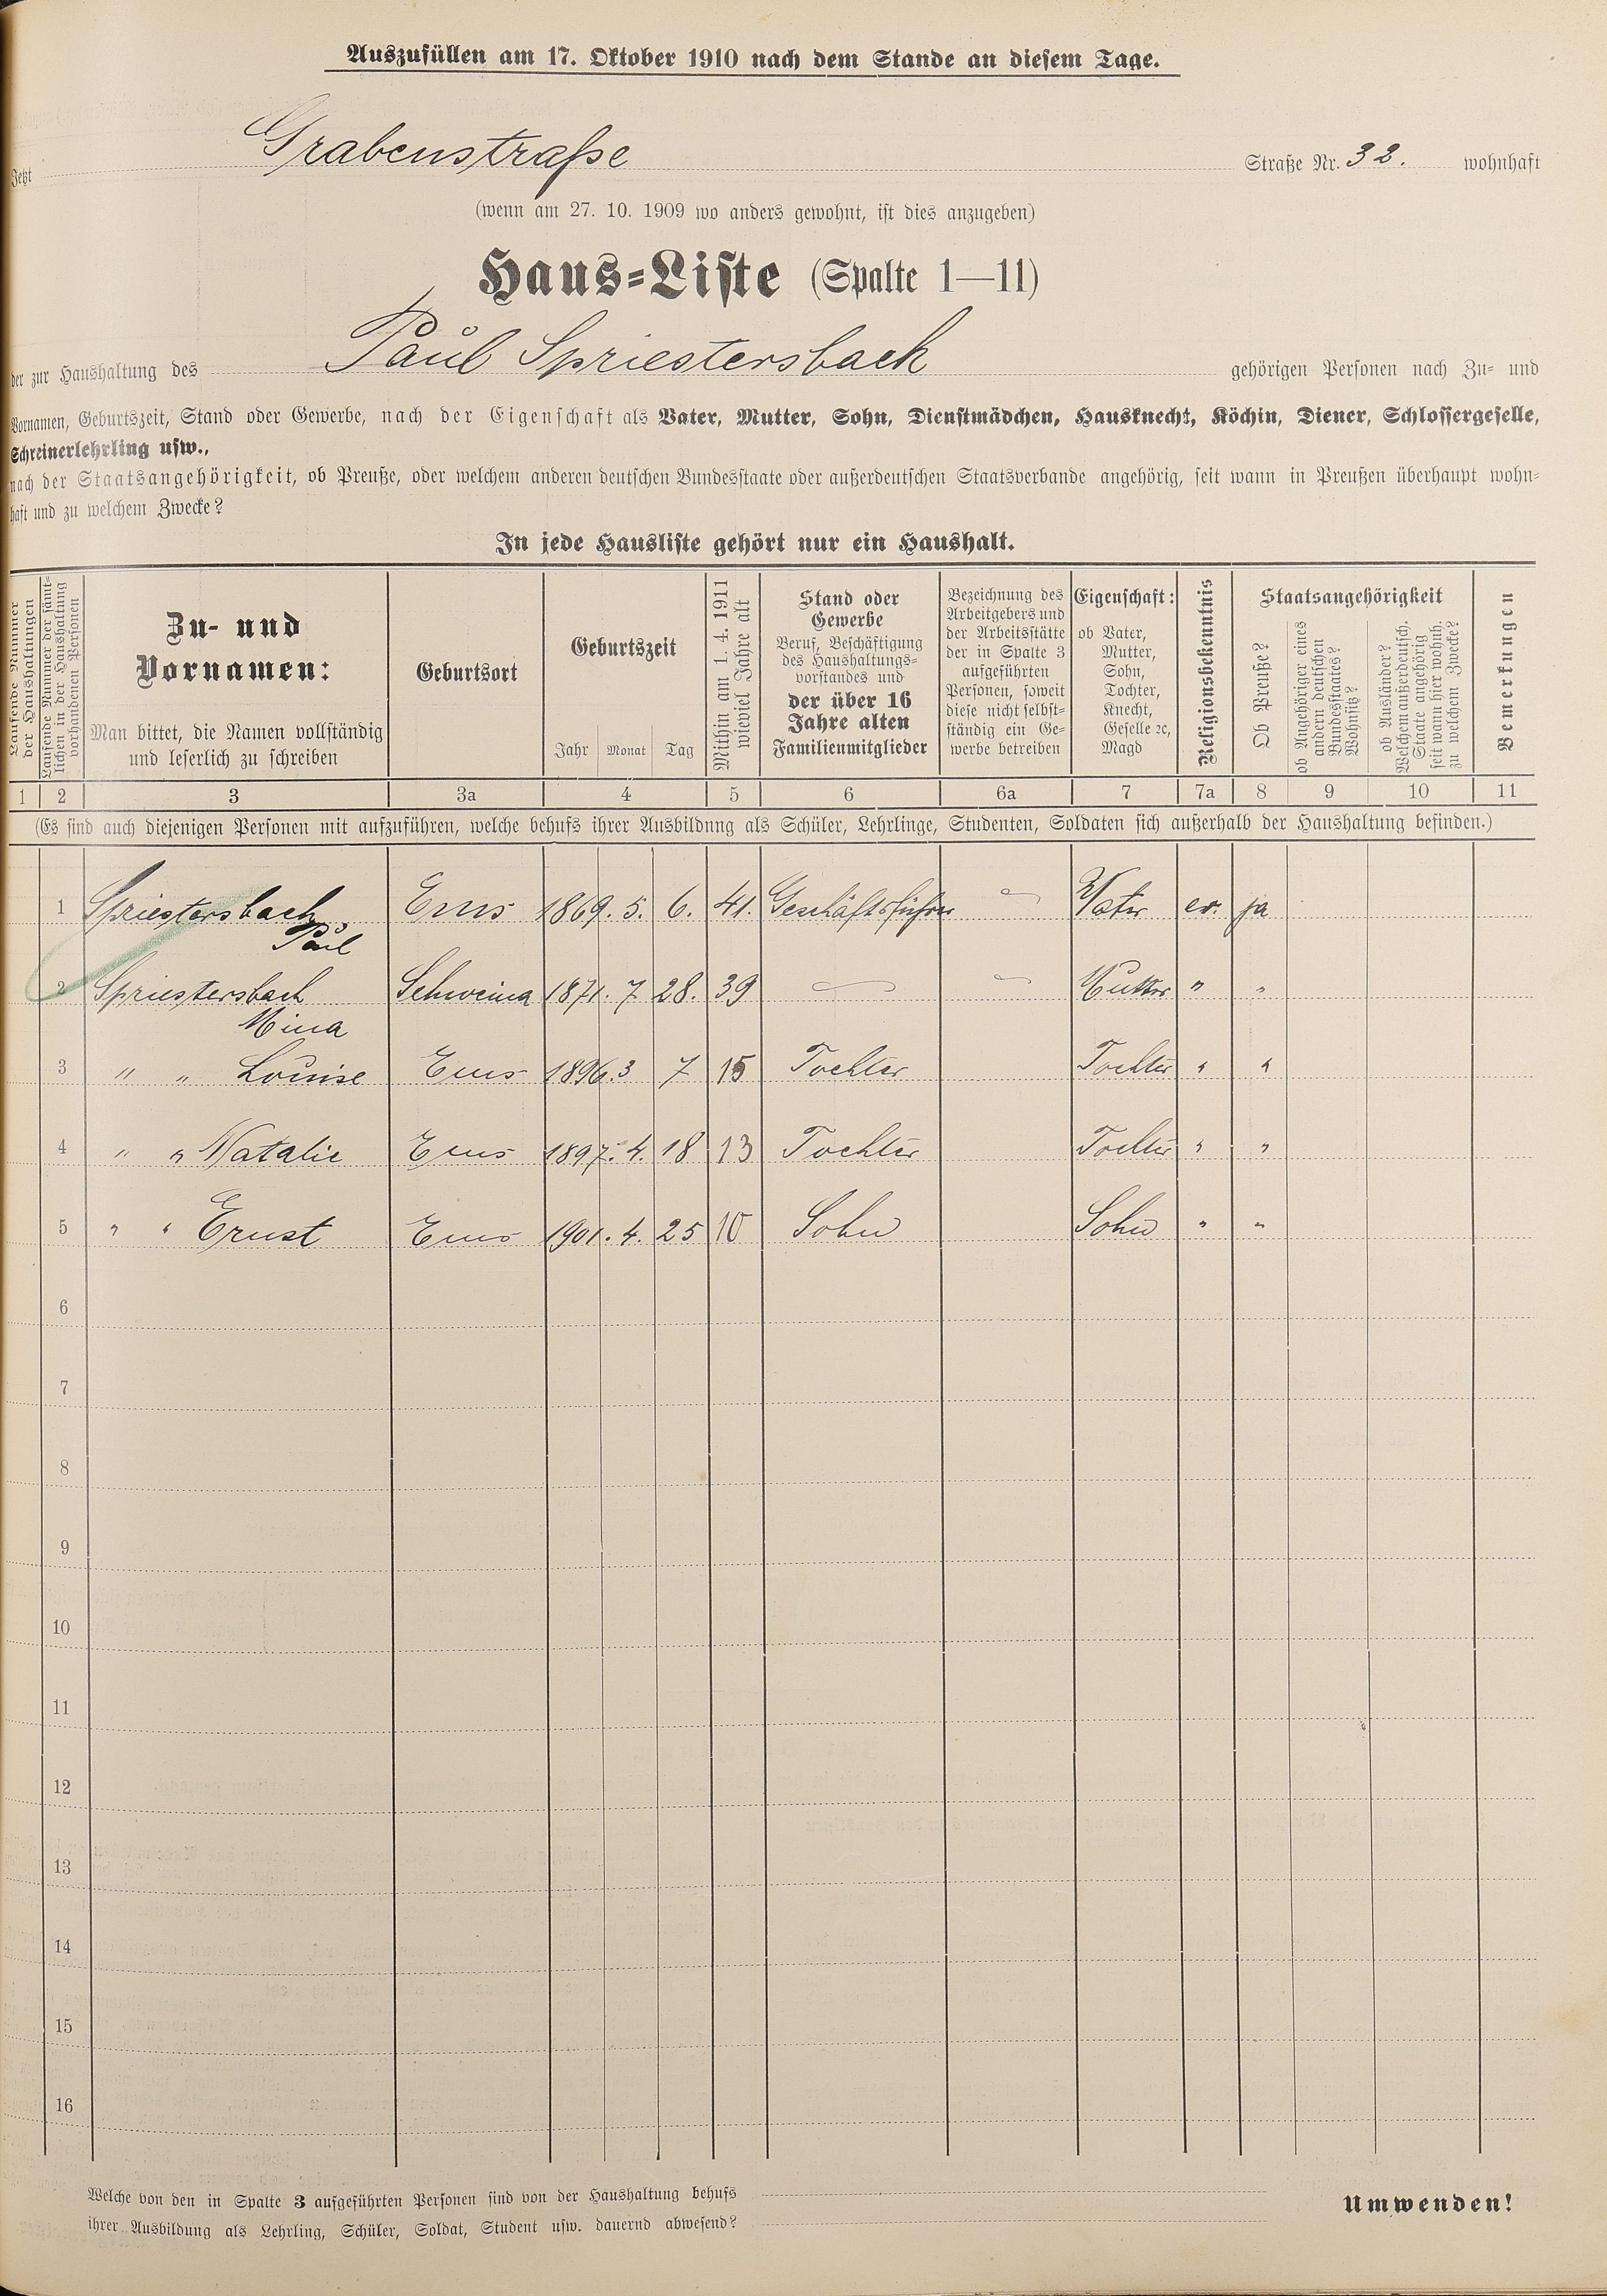 Auszufüllen am 17. Oktober 1910 nach dem Stande an diesem Tage.
Jetzt Grabenstraße Straße Nr. 32. wohnhaft
(wenn am 27. 10. 1909 wo anders gewohnt, ist dies anzugeben)
Haus-Liste (Spalte 1—11)
der zur Haushaltung des Paul Spriestersbach gehörigen Personen nach Zu- und
Vornamen, Geburtszeit, Stand oder Gewerbe, nach der Eigenschaft als Vater, Mutter, Sohn, Dienstmädchen, Hausknecht, Köchin, Diener, Schlossergeselle,
Schreinerlehrling usw.,
nach der Staatsangehörigkeit, ob Preuße, oder welchem anderen deutschen Bundesstaate oder außerdeutschen Staatsverbande angehörig, seit wann in Preußen überhaupt wohn-
haft und zu welchem Zwecke?
In jede Hausliste gehört nur ein Haushalt.
Laufende Nummer
der Haushaltungen
Laufende Nummer der sämt-
lichen in der Haushaltung
vorhandenen Personen
Zu- und
Vornamen:
Man bittet, die Namen vollständig
und leserlich zu schreiben
Geburtsort
Geburtszeit
Jahr Monat Tag
Mithin am 1. 4. 1911
wieviel Jahre alt
Stand oder
Gewerbe
Beruf, Beschäftigung
des Haushaltungs-
vorstandes und
der über 16
Jahre alten
Familienmitglieder
Bezeichnung des
Arbeitgebers und
der Arbeitsstätte
der in Spalte 3
aufgeführten
Personen, soweit
diese nicht selbst-
ständig ein Ge-
werbe betreiben
Eigenschaft:
ob Vater,
Mutter,
Sohn,
Tochter,
Knecht,
Geselle ꝛc,
Magd
Religionsbekenntnis
Staatsangehörigkeit
Ob Preuße?
ob Angehöriger eines
andern deutschen
Bundesstaates?
Wohnsitz?
ob Ausländer?
Welchem außerdeutsch.
Staate angehörig
seit wann hier wohnh.
zu welchem Zwecke?
Bemerkungen
1 2 3 3a 4 5 6 6a 7 7a 8 9 10 11
(Es sind auch diejenigen Personen mit aufzuführen, welche behufs ihrer Ausbildung als Schüler, Lehrlinge, Studenten, Soldaten sich außerhalb der Haushaltung befinden.)
1 Spriestersbach Ems 1869. 5. 6. 41. Geschäftsführer Vater ev. ja
Paul
2 Spriestersbach Schweina 1871. 7 28. 39 Mutter " "
Mina
3 " " Louise Ems 1896. 3 7 15 Tochter Tochter " "
4 " " Natalie Ems 1897. 4. 18 13 Tochter Tochter " "
5 " " Ernst Ems 1901. 4. 25 10 Sohn Sohn " "
6
7
8
9
10
11
12
13
14
15
16
Welche von den in Spalte 3 aufgeführten Personen sind von der Haushaltung behufs
ihrer Ausbildung als Lehrling, Schüler, Soldat, Student usw. dauernd abwesend?
Umwenden!